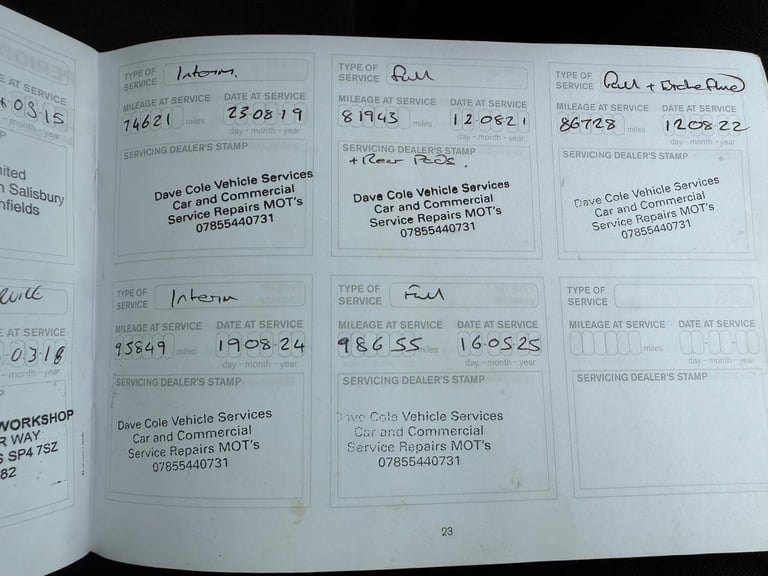 E AT SERVICE
03.15
month - year
nited
n Salisbury
nfields
E AT SERVICE
.03.18
month - year
WORKSHOP
R WAY
S SP4 7SZ
82
TYPE OF SERVICE Interim.
MILEAGE AT SERVICE DATE AT SERVICE
74621 miles 23.08.19
day - month - year
SERVICING DEALER'S STAMP
Dave Cole Vehicle Services
Car and Commercial
Service Repairs MOT's
07855440731
TYPE OF SERVICE Full
MILEAGE AT SERVICE DATE AT SERVICE
81943 miles 12.08.21
day - month - year
SERVICING DEALER'S STAMP
+ Rear Pads.
Dave Cole Vehicle Services
Car and Commercial
Service Repairs MOT's
07855440731
TYPE OF SERVICE Full + Brake Fluid
MILEAGE AT SERVICE DATE AT SERVICE
86728 miles 12.08.22
day - month - year
SERVICING DEALER'S STAMP
Dave Cole Vehicle Services
Car and Commercial
Service Repairs MOT's
07855440731
TYPE OF SERVICE Interim
MILEAGE AT SERVICE DATE AT SERVICE
95849 miles 19.08.24
day - month - year
SERVICING DEALER'S STAMP
Dave Cole Vehicle Services
Car and Commercial
Service Repairs MOT's
07855440731
TYPE OF SERVICE Full
MILEAGE AT SERVICE DATE AT SERVICE
98655 miles 16.05.25
day - month - year
SERVICING DEALER'S STAMP
Dave Cole Vehicle Services
Car and Commercial
Service Repairs MOT's
07855440731
TYPE OF SERVICE
MILEAGE AT SERVICE DATE AT SERVICE
miles
day - month - year
SERVICING DEALER'S STAMP
23